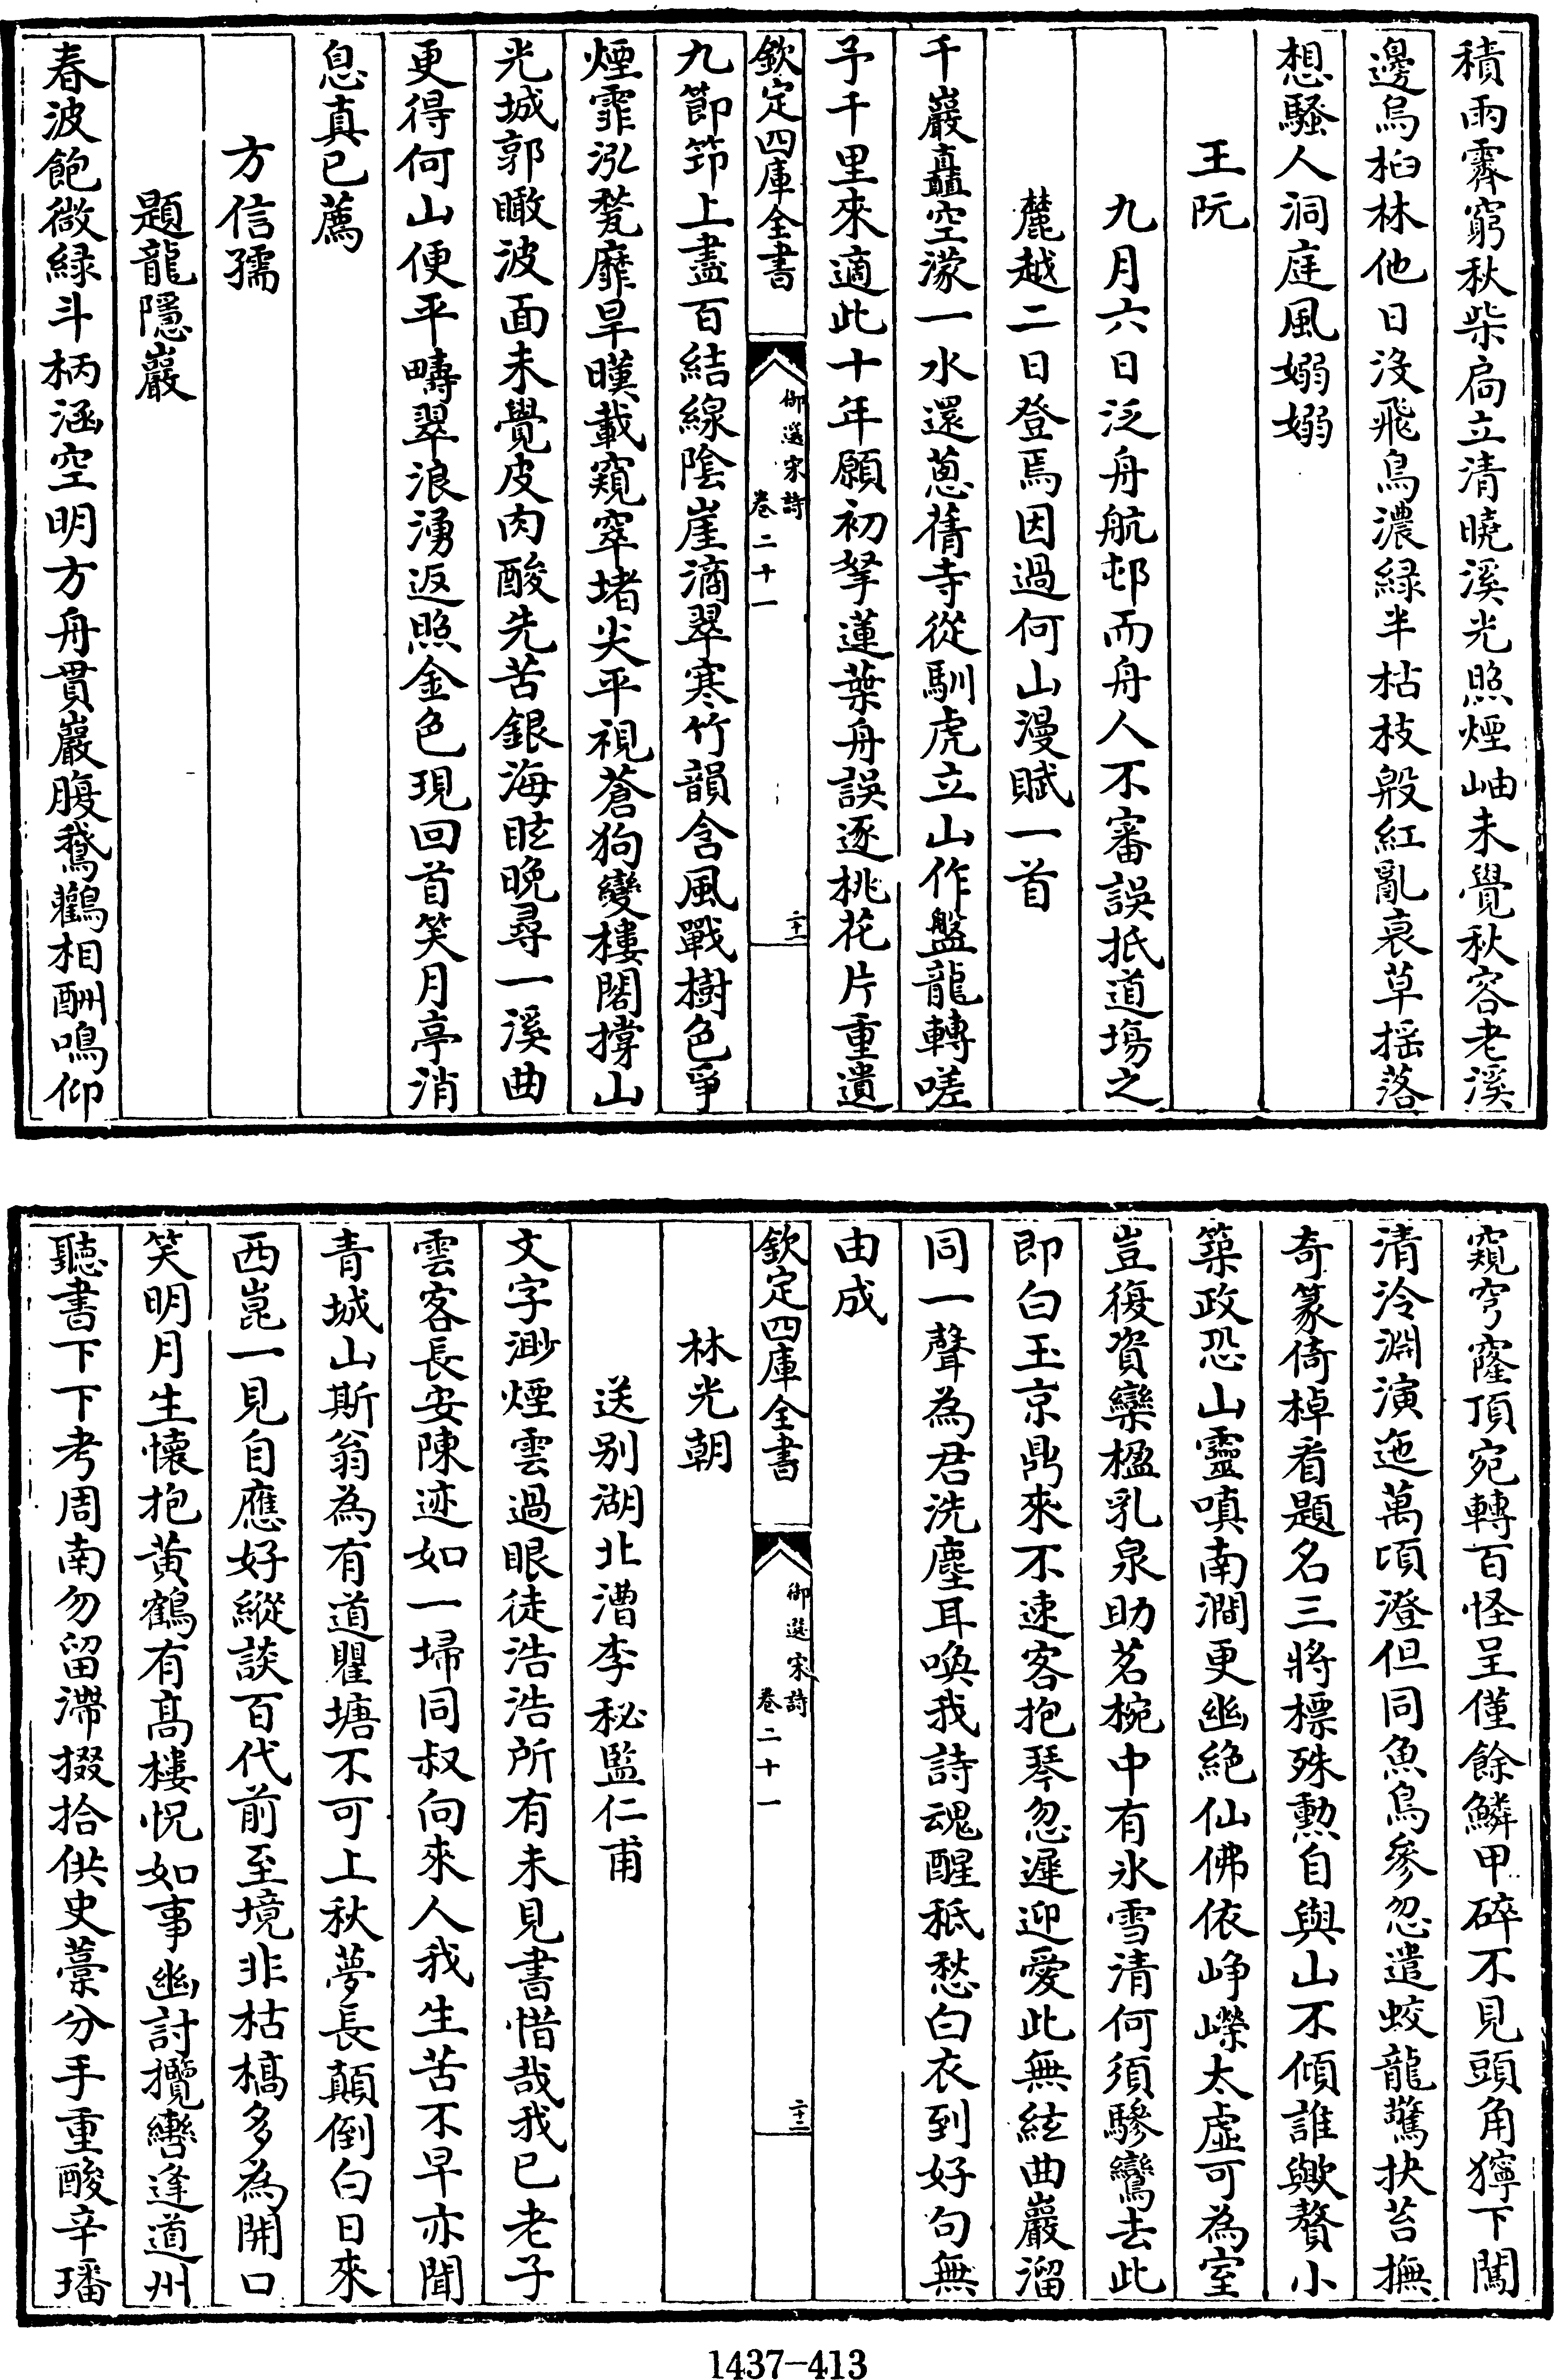 積雨霽窮秋柴扃立清曉溪光照煙岫未覺秋容老溪
邊烏桕林他日沒飛鳥濃綠半枯枝殷紅亂衰草揺落
想騷人洞庭風嫋嫋
王阮
九月六日泛舟航邨而舟人不審誤抵道塲之
麓越二日登焉因過何山漫賦一首
千巖矗空濛一水還蔥蒨寺從馴虎立山作盤龍轉嗟
予千里來適此十年願初拏蓮葉舟誤逐桃花片重遺
欽定四庫全書
御選宋詩
卷二十一
二十一
九節笻上盡百結線陰崖滴翠寒竹韻含風戰樹色爭
煙霏泓甃靡旱暵載窺窣堵尖平視蒼狗變樓閣撐山
光城郭瞰波面未覺皮肉酸先苦銀海眩晩尋一溪曲
更得何山便平疇翠浪湧返照金色現回首笑月亭消
息真已薦
方信孺
題龍隱巖
春波飽微緑斗柄涵空明方舟貫巖腹鵞鸛相酬鳴仰
窺穹窿頂宛轉百怪呈僅餘鱗甲碎不見頭角獰下闖
清泠淵演迤萬頃澄但同魚鳥參忽遣蛟龍驚抉苔撫
奇篆倚棹看題名三將標殊勲自與山不傾誰歟贅小
築政恐山靈嗔南澗更幽絶仙佛依崢嶸太虛可為室
豈復資欒楹乳泉助茗椀中有氷雪清何須驂鸞去此
即白玉京鼎來不速客抱琴忽遲迎愛此無絃曲巖溜
同一聲為君洗塵耳喚我詩魂醒秪愁白衣到好句無
由成
欽定四庫全書
御選宋詩
卷二十一
二十二
林光朝
送别湖北漕李秘監仁甫
文字渺煙雲過眼徒浩浩所有未見書惜哉我已老子
雲客長安陳迹如一埽同叔向來人我生苦不早亦聞
青城山斯翁為有道瞿塘不可上秋夢長顛倒白日來
西崑一見自應好縱談百代前至境非枯槁多為開口
笑明月生懷抱黄鶴有髙樓怳如事幽討攬轡逢道州
聽書下下考周南勿留滯掇拾供史藁分手重酸辛璠
1437-413